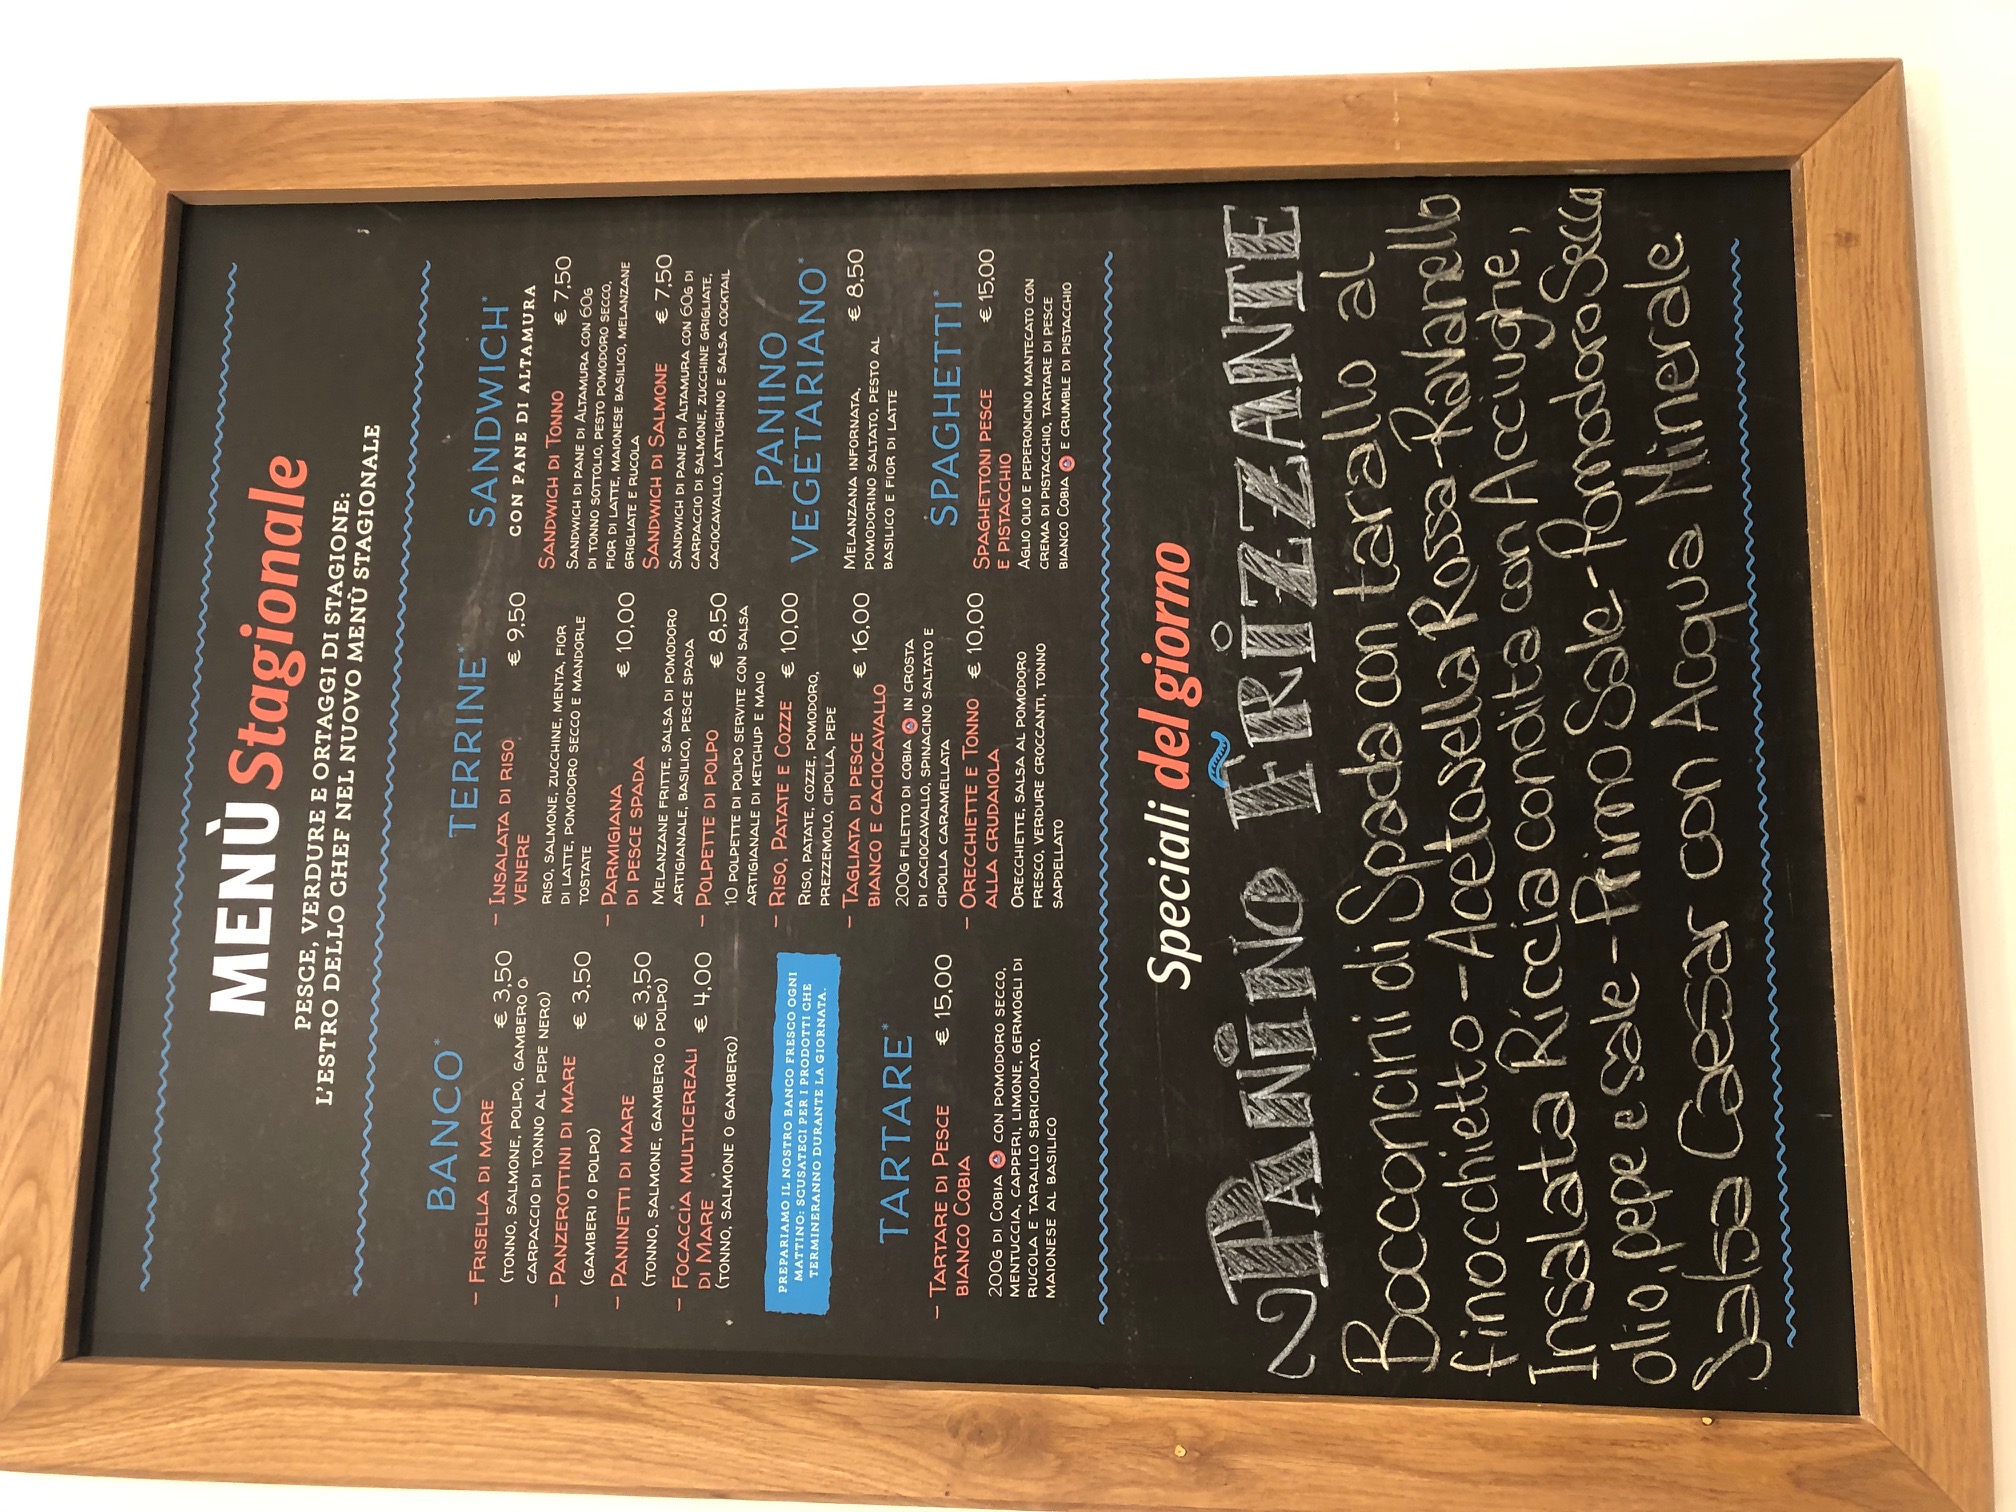 MENÙ Stagionale
PESCE, VERDURE E ORTAGGI DI STAGIONE:
L'ESTRO DELLO CHEF NEL NUOVO MENÙ STAGIONALE
BANCO*
- FRISELLA DI MARE € 3,50
(TONNO, SALMONE, POLPO, GAMBERO O
CARPACCIO DI TONNO AL PEPE NERO)
- PANZEROTTINI DI MARE € 3,50
(GAMBERI O POLPO)
- PANINETTI DI MARE € 3,50
(TONNO, SALMONE, GAMBERO O POLPO)
- FOCACCIA MULTICEREALI € 4,00
DI MARE
(TONNO, SALMONE O GAMBERO)
PREPARIAMO IL NOSTRO BANCO FRESCO OGNI
MATTINO: SCUSATECI PER I PRODOTTI CHE
TERMINERANNO DURANTE LA GIORNATA.
TARTARE*
- TARTARE DI PESCE € 15,00
BIANCO COBIA
200G DI COBIA CON POMODORO SECCO,
MENTUCCIA, CAPPERI, LIMONE, GERMOGLI DI
RUCOLA E TARALLO SBRICIOLATO,
MAIONESE AL BASILICO
TERRINE*
- INSALATA DI RISO € 9,50
VENERE
RISO, SALMONE, ZUCCHINE, MENTA, FIOR
DI LATTE, POMODORO SECCO E MANDORLE
TOSTATE
- PARMIGIANA € 10,00
DI PESCE SPADA
MELANZANE FRITTE, SALSA DI POMODORO
ARTIGIANALE, BASILICO, PESCE SPADA
- POLPETTE DI POLPO € 8,50
10 POLPETTE DI POLPO SERVITE CON SALSA
ARTIGIANALE DI KETCHUP E MAIO
- RISO, PATATE E COZZE € 10,00
RISO, PATATE, COZZE, POMODORO,
PREZZEMOLO, CIPOLLA, PEPE
- TAGLIATA DI PESCE € 16,00
BIANCO E CACIOCAVALLO
200G FILETTO DI COBIA IN CROSTA
DI CACIOCAVALLO, SPINACINO SALTATO E
CIPOLLA CARAMELLATA
- ORECCHIETTE E TONNO € 10,00
ALLA CRUDAIOLA
ORECCHIETTE, SALSA AL POMODORO
FRESCO, VERDURE CROCCANTI, TONNO
SAPDELLATO
SANDWICH*
CON PANE DI ALTAMURA
SANDWICH DI TONNO € 7,50
SANDWICH DI PANE DI ALTAMURA CON 60G
DI TONNO SOTTOLIO, PESTO POMODORO SECCO,
FIOR DI LATTE, MAIONESE BASILICO, MELANZANE
GRIGLIATE E RUCOLA
SANDWICH DI SALMONE € 7,50
SANDWICH DI PANE DI ALTAMURA CON 60G DI
CARPACCIO DI SALMONE, ZUCCHINE GRIGLIATE,
CACIOCAVALLO, LATTUGHINO E SALSA COCKTAIL
PANINO
VEGETARIANO*
MELANZANA INFORNATA, € 8,50
POMODORINO SALTATO, PESTO AL
BASILICO E FIOR DI LATTE
SPAGHETTI*
SPAGHETTONI PESCE € 15,00
E PISTACCHIO
AGLIO OLIO E PEPERONCINO MANTECATO CON
CREMA DI PISTACCHIO, TARTARE DI PESCE
BIANCO COBIA E CRUMBLE DI PISTACCHIO
Speciali del giorno
~ PANINO FRIZZANTE
Bocconcini di Spada con tarallo al
finocchietto - Acetosella Rossa - Ravanello
Insalata Riccia condita con Acciughe,
olio, pepe e sale - Primo Sale - Pomodoro Secco
Salsa Caesar con Acqua Minerale